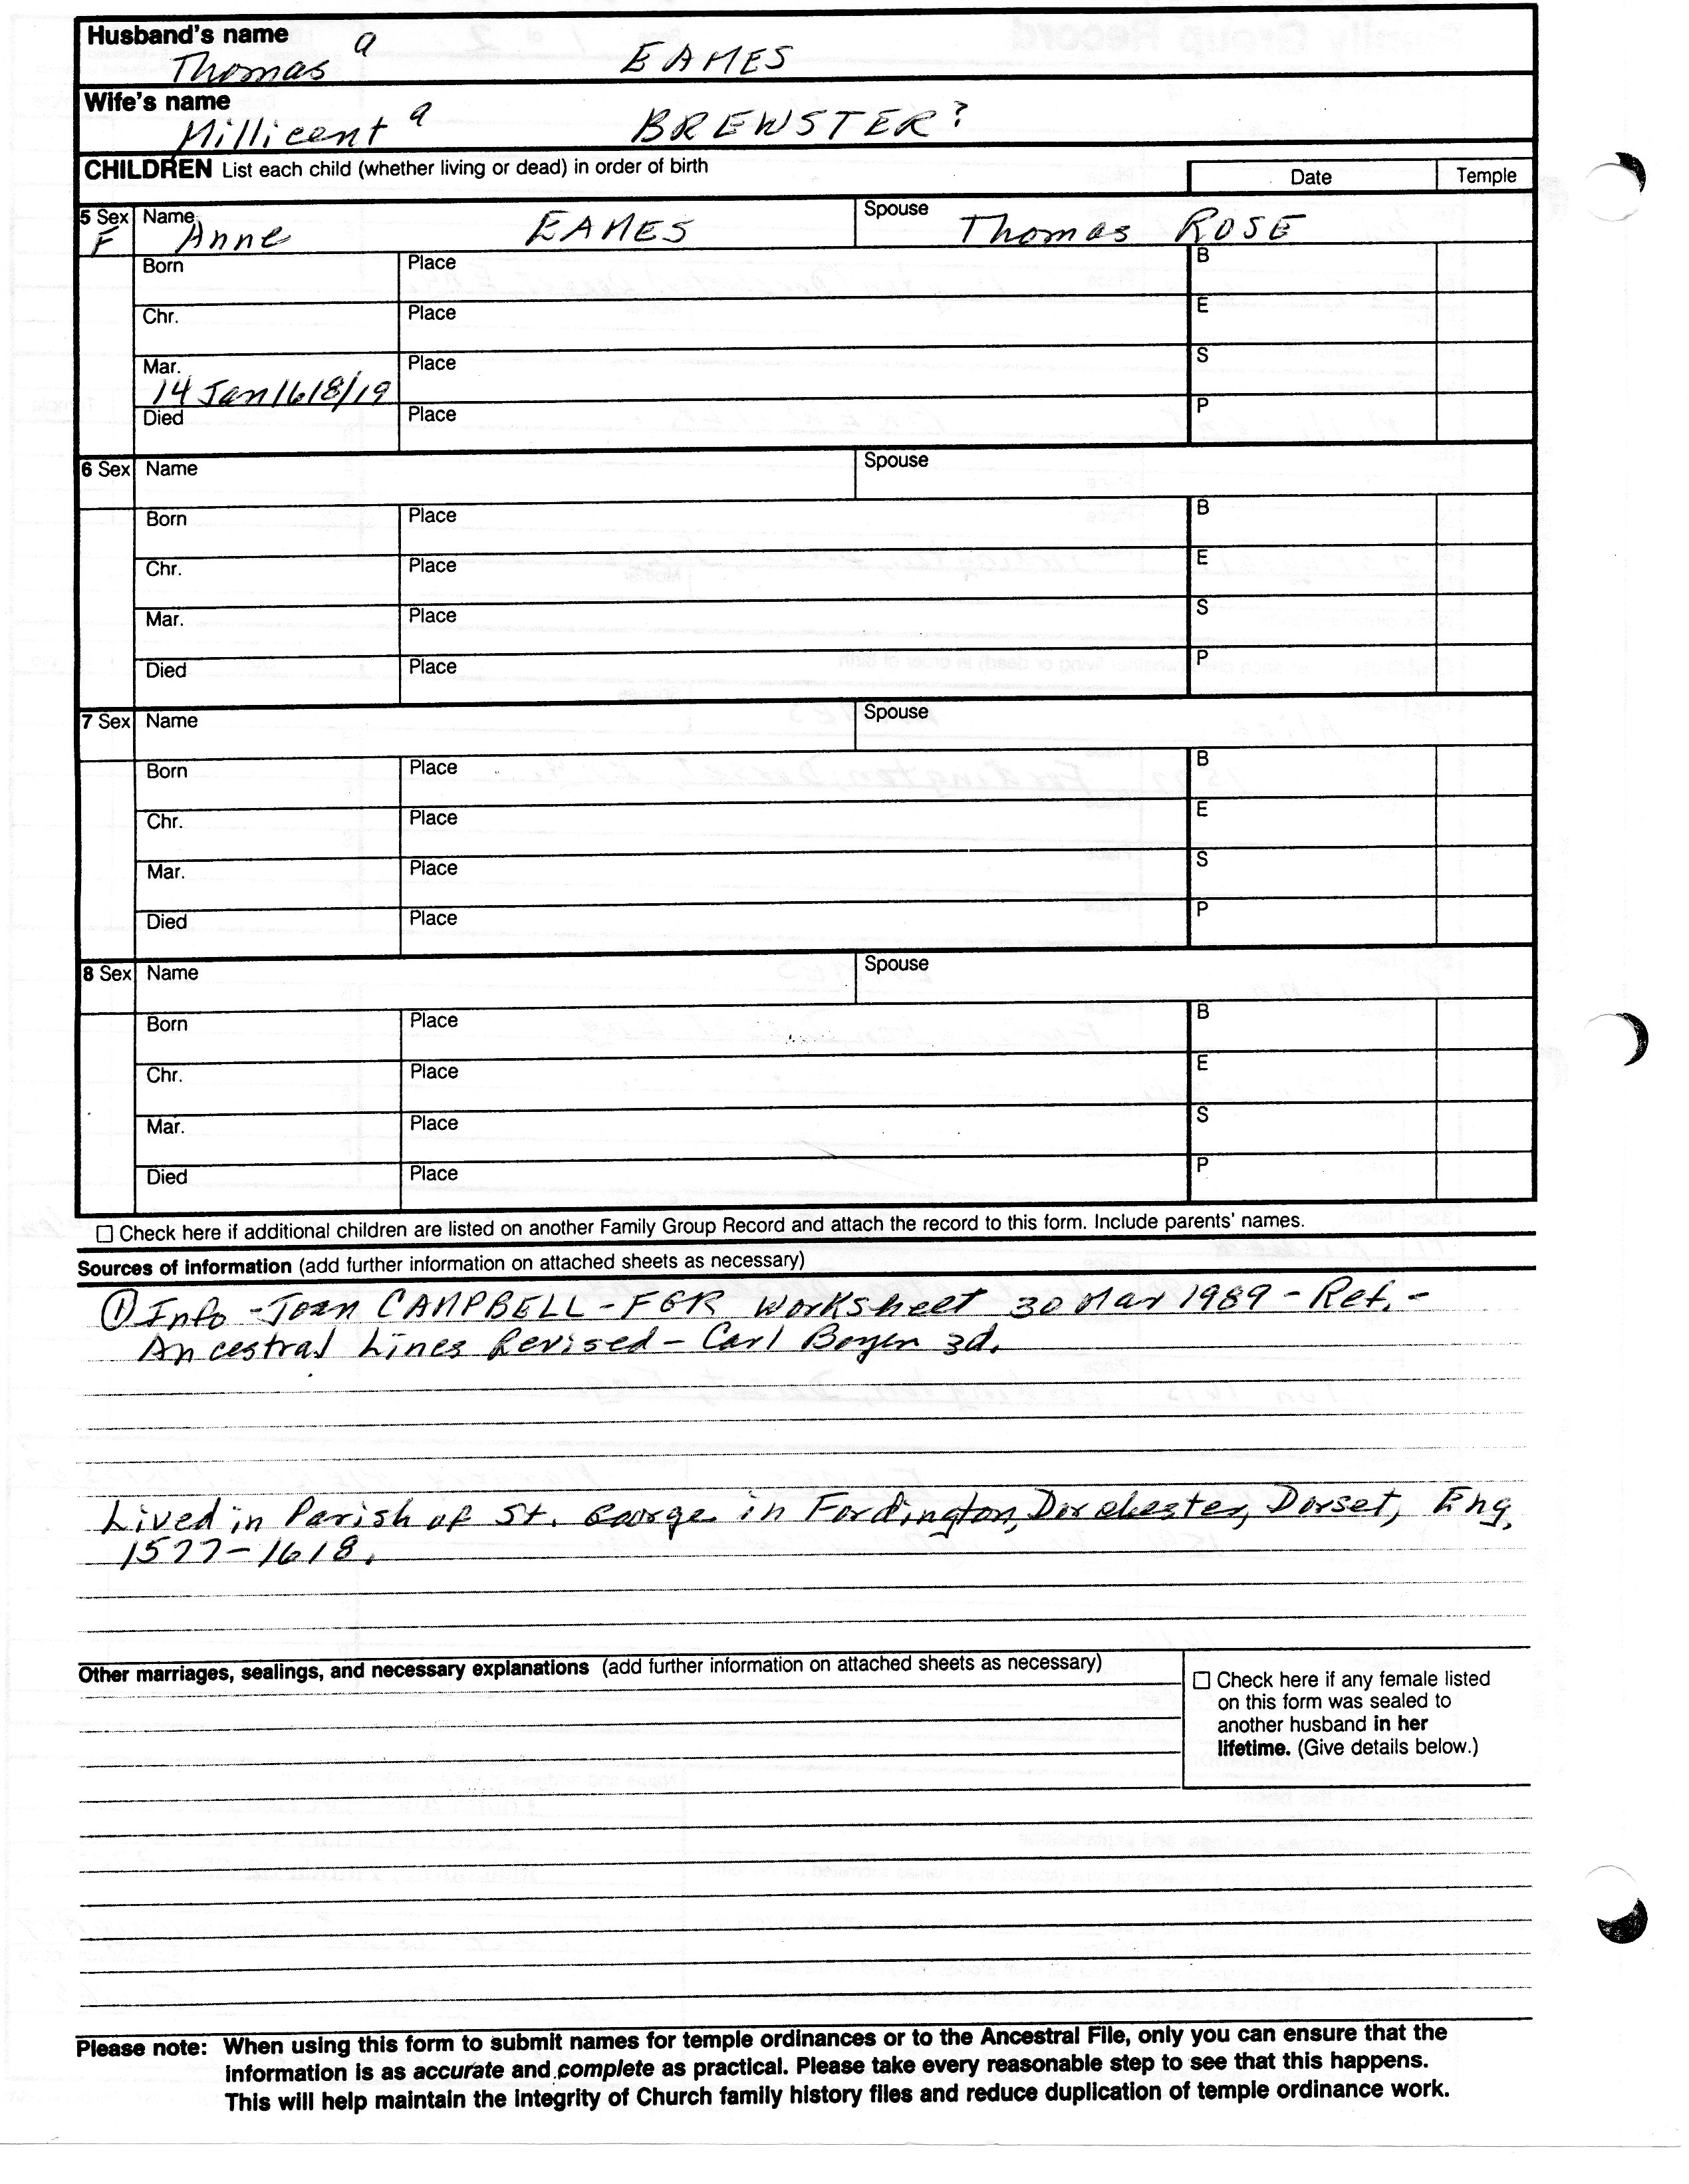 Husband's name
Thomas a EAMES
Wife's name
Millicent a BREWSTER?
CHILDREN List each child (whether living or dead) in order of birth Date Temple
5 Sex Name Spouse
F Anne EAMES Thomas ROSE
Born Place B
Chr. Place E
Mar. Place S
14 Jan 1618/19
Died Place P
6 Sex Name Spouse
Born Place B
Chr. Place E
Mar. Place S
Died Place P
7 Sex Name Spouse
Born Place B
Chr. Place E
Mar. Place S
Died Place P
8 Sex Name Spouse
Born Place B
Chr. Place E
Mar. Place S
Died Place P
☐ Check here if additional children are listed on another Family Group Record and attach the record to this form. Include parents' names.
Sources of information (add further information on attached sheets as necessary)
① Info - Joan CAMPBELL - FGR Worksheet 30 Mar 1989 - Ref. -
Ancestral Lines Revised - Carl Boyer 3d.
Lived in Parish of St. George in Fordington, Dorchester, Dorset, Eng.
1577-1618.
Other marriages, sealings, and necessary explanations (add further information on attached sheets as necessary)
☐ Check here if any female listed
on this form was sealed to
another husband in her
lifetime. (Give details below.)
Please note: When using this form to submit names for temple ordinances or to the Ancestral File, only you can ensure that the
information is as accurate and complete as practical. Please take every reasonable step to see that this happens.
This will help maintain the integrity of Church family history files and reduce duplication of temple ordinance work.